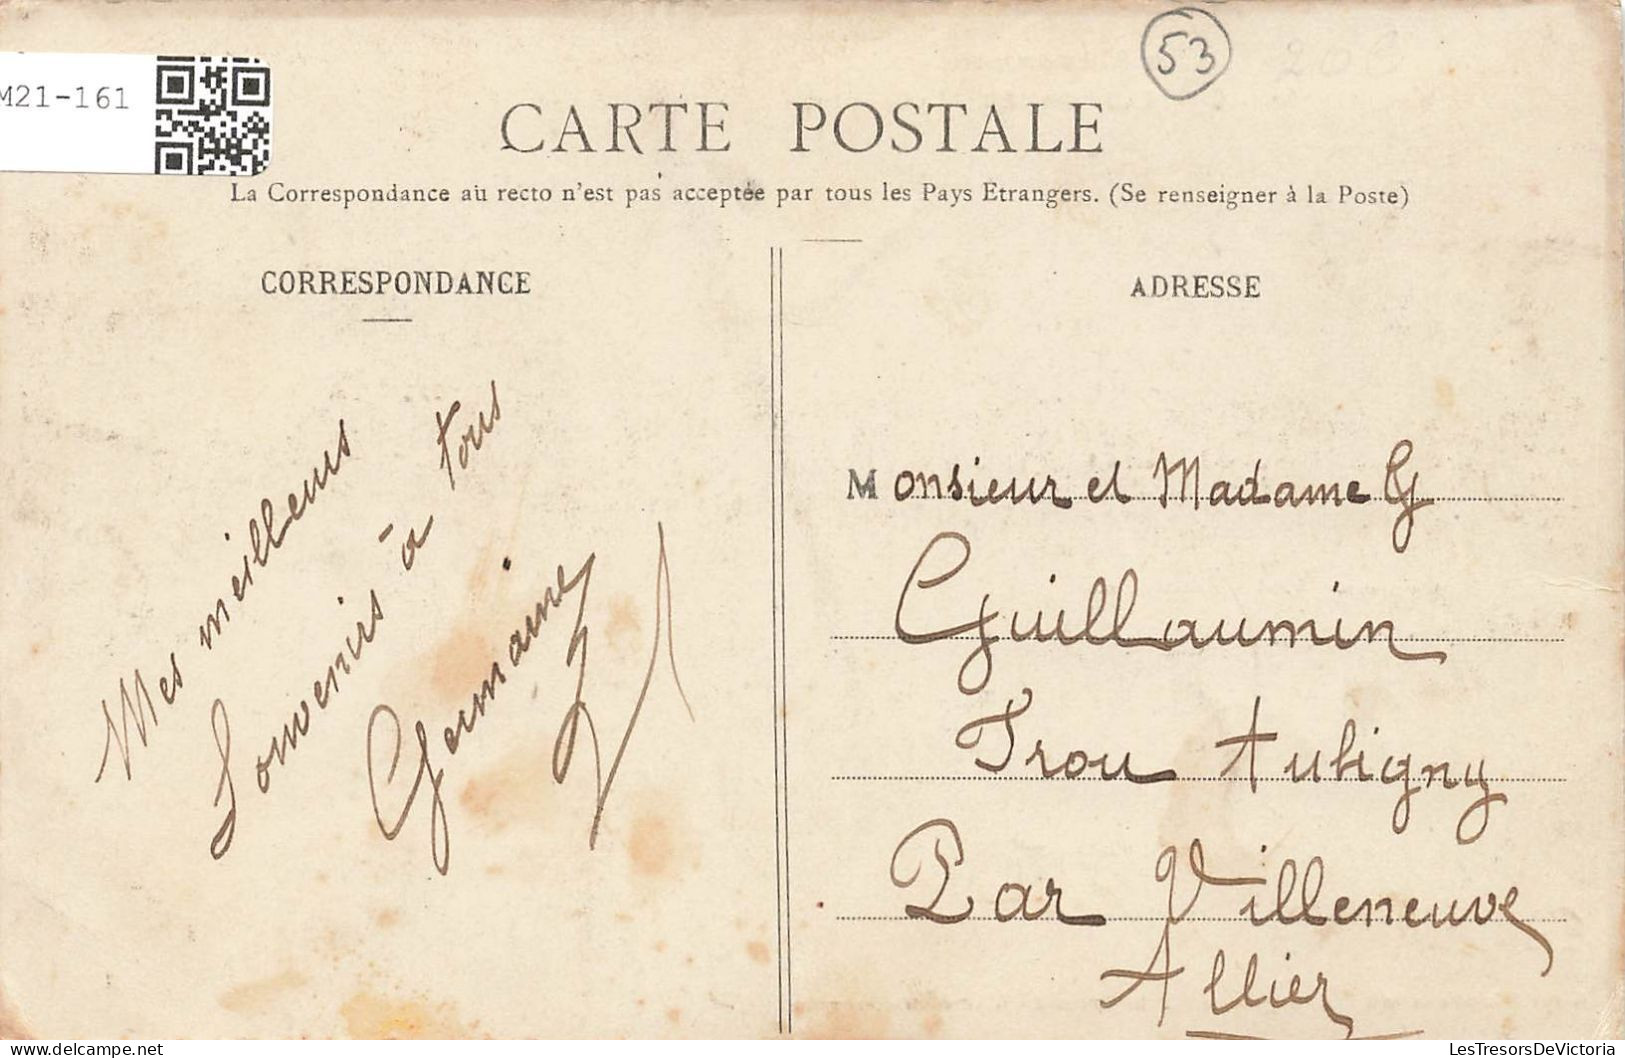 53
M21-161
CARTE POSTALE
La Correspondance au recto n'est pas acceptée par tous les Pays Etrangers. (Se renseigner à la Poste)
CORRESPONDANCE
Mes meilleurs
Souvenirs à tous
Germaine
ADRESSE
Monsieur et Madame G
Guillaumin
Trou Aubigny
Par Villeneuve
Allier
LesTresorsDeVictoria